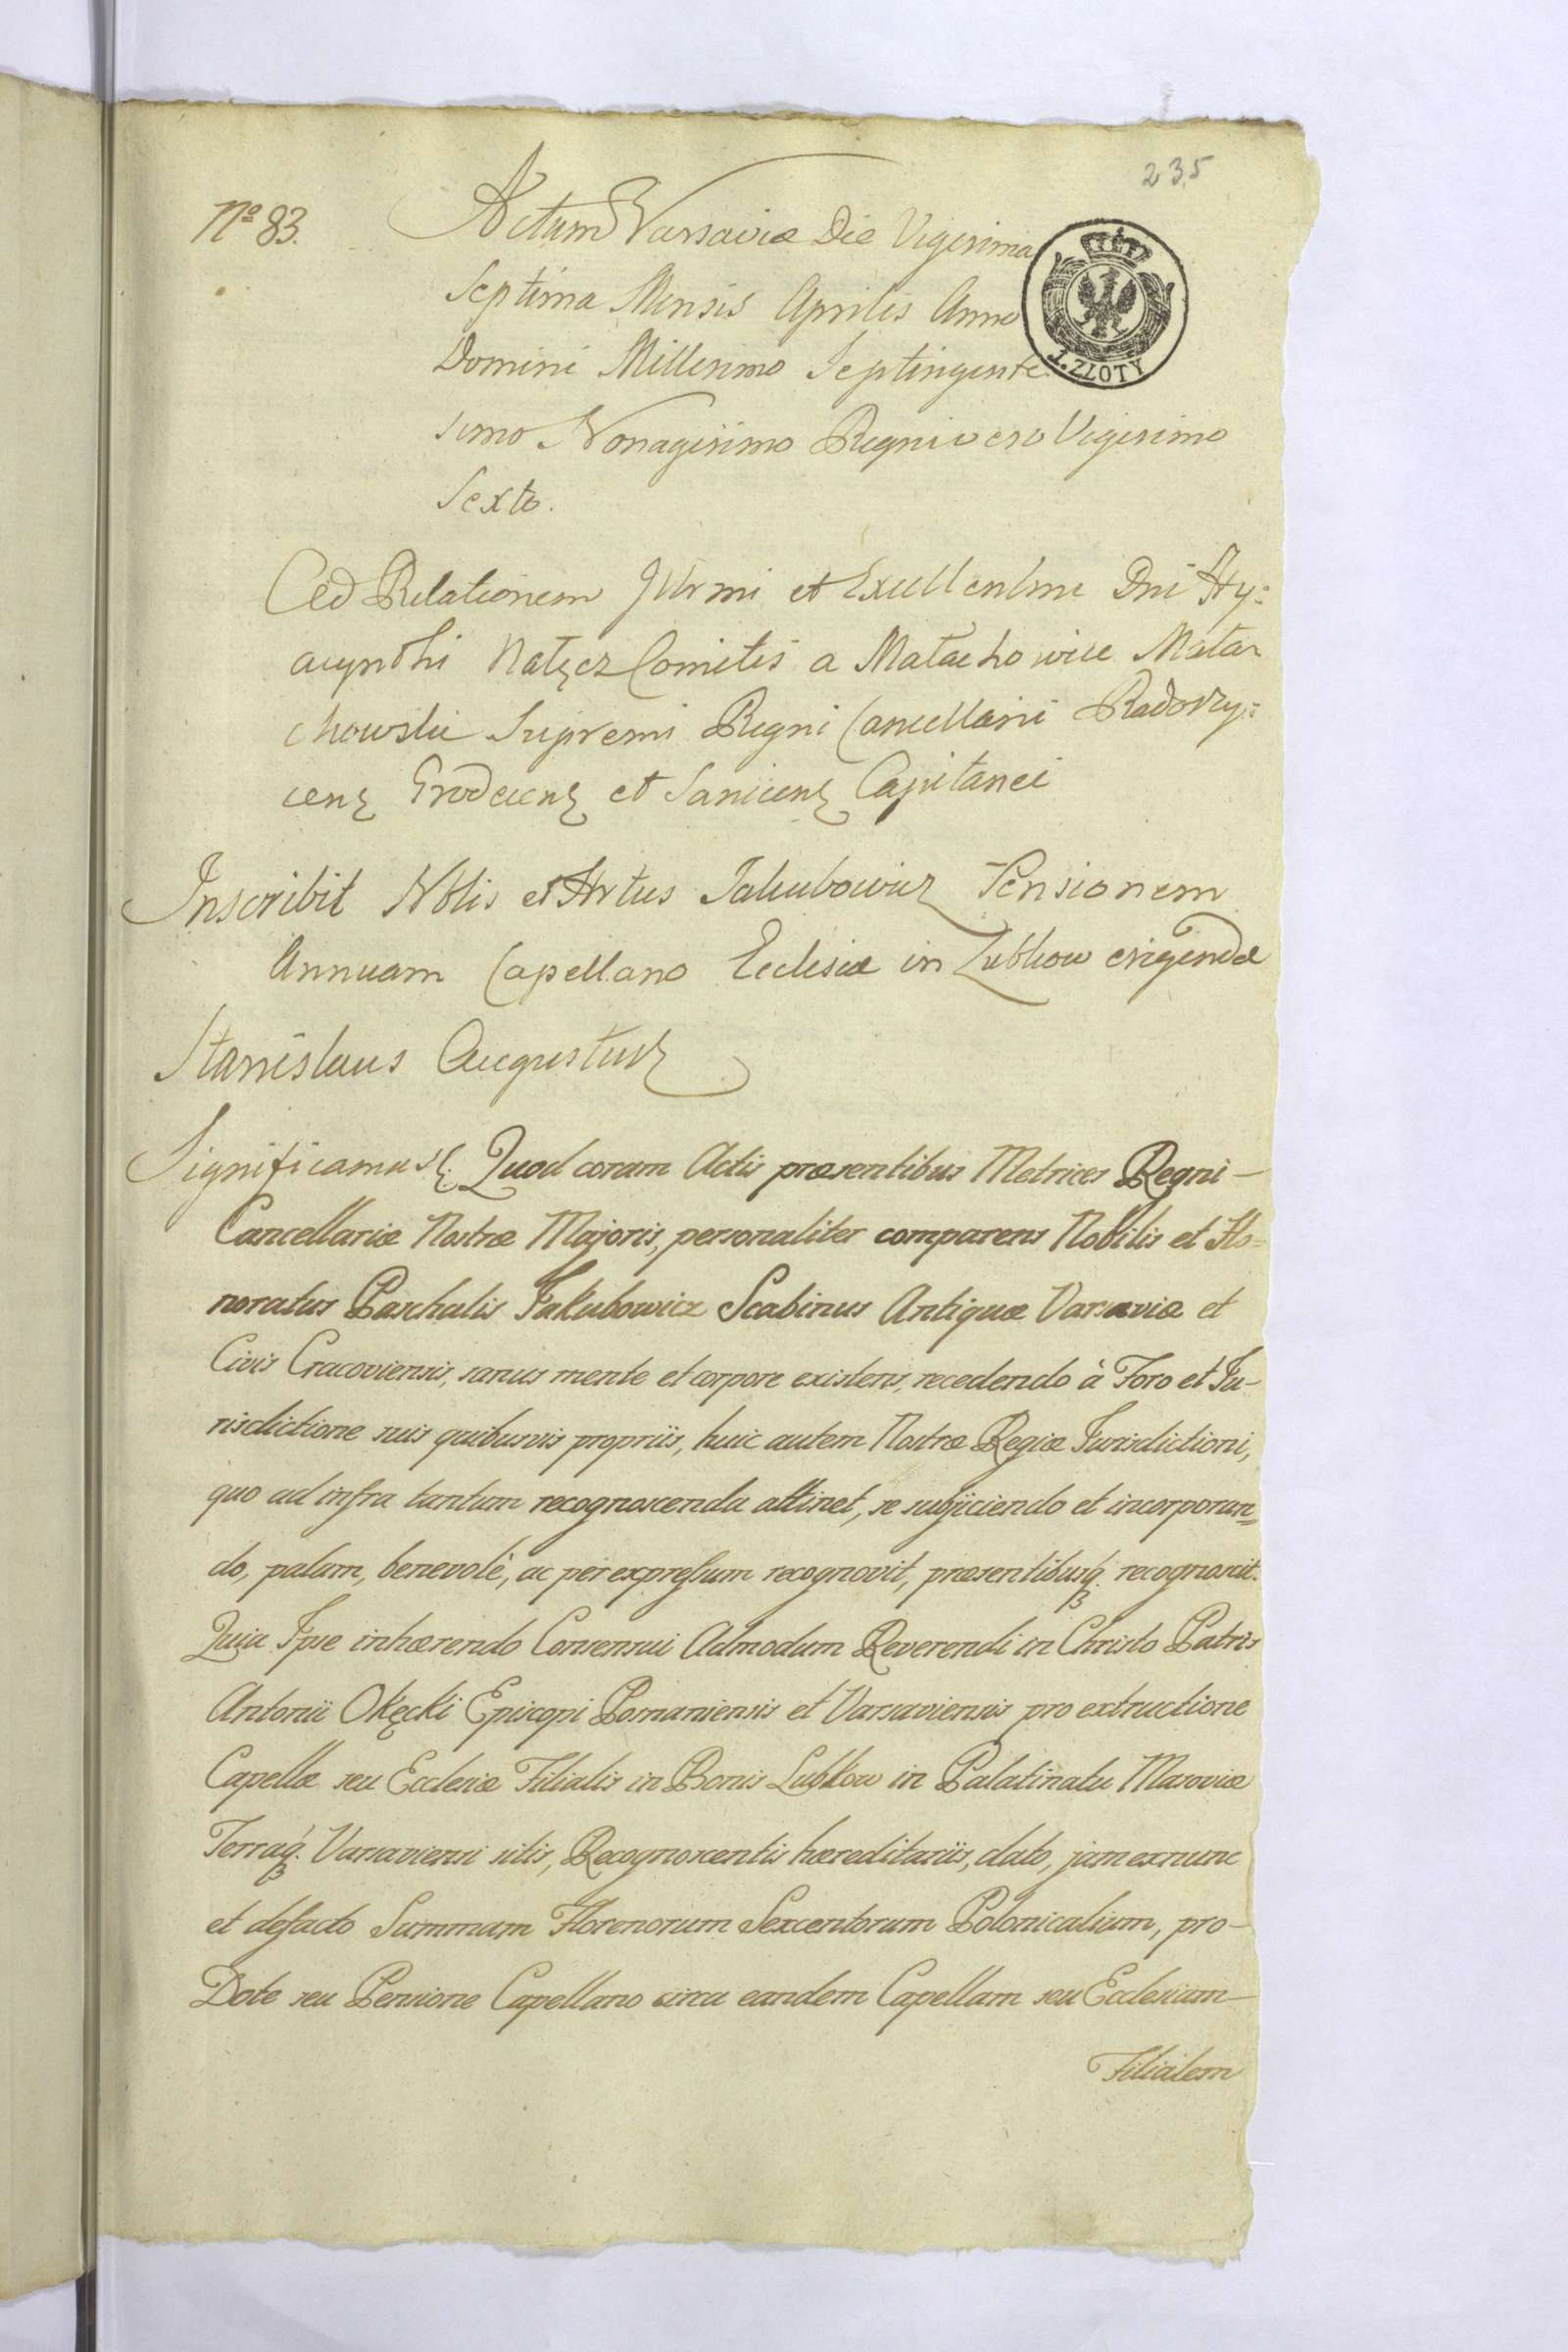 235
Nº 83.
Actum Varsaviæ Die Vigesima
Septima Mensis Aprilis Anno
Domini Millesimo Septingente
simo Nonagesimo Regni vero Vigesimo
Sexto.
1. ZŁOTY
Ad Relationem Illrmi et Excellentmi Dni Hy:
acynthi Nałęcz Comitis a Małachowice Mała
chowski Supremi Regni Cancellarii Radoszy:
cenz Grodecenz et Sanicenz Capitanei
Inscribit Nblis et Hrtus Jakubowicz Pensionem
Annuam Capellano Ecclesiæ in Lubkow erigendæ
Stanislaus Augustus
Significamus. Quod coram Actis præsentibus Metrices Regni —
Cancellariæ Nostræ Majoris, personaliter comparens Nobilis et Ho=
noratus Paschalis Jakubowicz Scabinus Antiquæ Varsaviæ et
Civis Cracoviensis, sanus mente et corpore existens, recedendo à Foro et Ju-
risdictione suis quibusvis propriis, huic autem Nostræ Regiæ Jurisdictioni,
quo ad infra tantum recognoscenda attinet, se subjiciendo et incorporan=
do, palam, benevolè, ac per expressum recognovit, præsentibusq. recognoscit.
Quia Ipse inhærendo Consensui Admodum Reverendi in Christo Patris
Antonii Okęcki Episcopi Posnaniensis et Varsaviensis pro extructione
Capellæ seu Ecclesiæ Filialis in Bonis Lubkow in Palatinatu Masoviæ
Terraq. Varsaviensi sitis, Recognoscentis hæreditariis, dato, jam exnunc
et defacto Summam Florenorum Sexcentorum Polonicalium, pro —
Dote seu Pensione Capellano circa eandem Capellam seu Ecclesiam —
Filialem